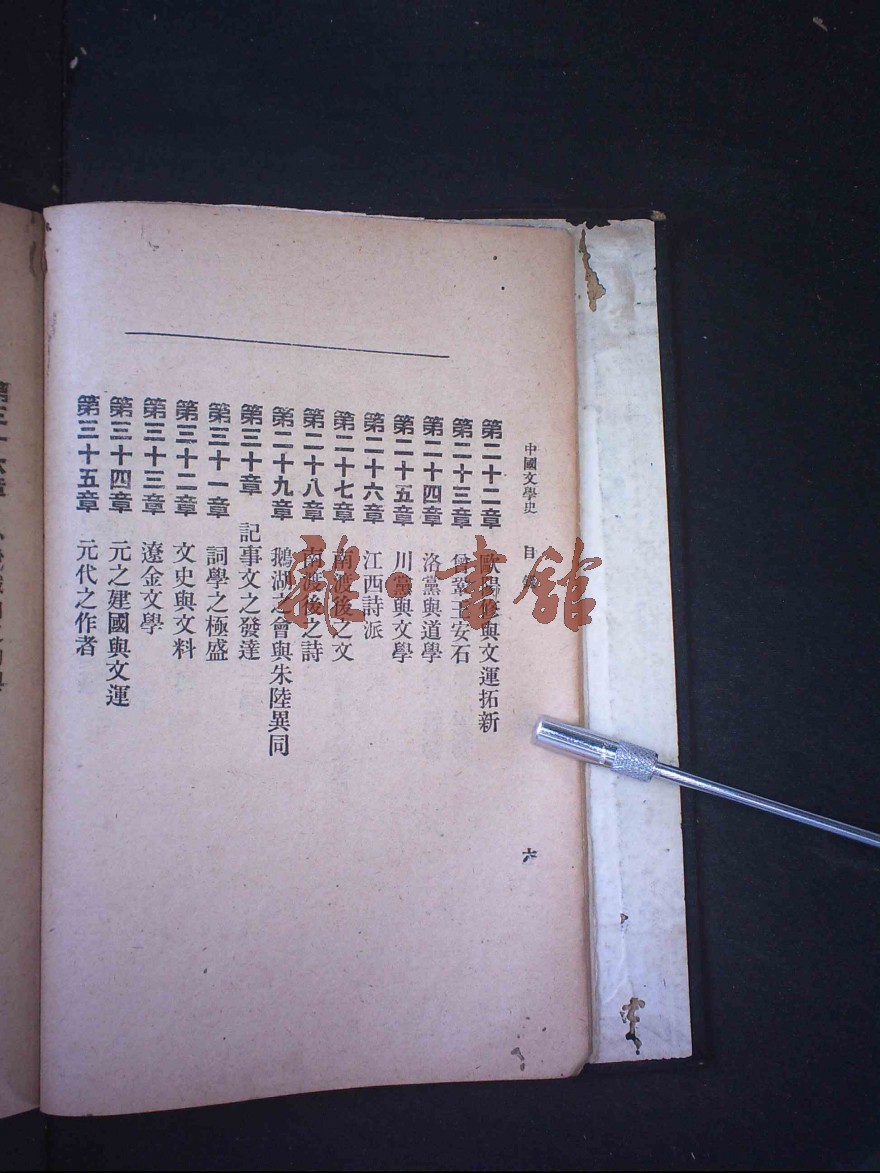 中國文學史 目錄 六
第二十二章 歐陽修與文運拓新
第二十三章 曾鞏王安石
第二十四章 洛黨與道學
第二十五章 川黨與文學
第二十六章 江西詩派
第二十七章 南渡後之文
第二十八章 南渡後之詩
第二十九章 鵝湖之會與朱陸異同
第三十章 記事文之發達
第三十一章 詞學之極盛
第三十二章 文史與文料
第三十三章 遼金文學
第三十四章 元之建國與文運
第三十五章 元代之作者
雜·書館